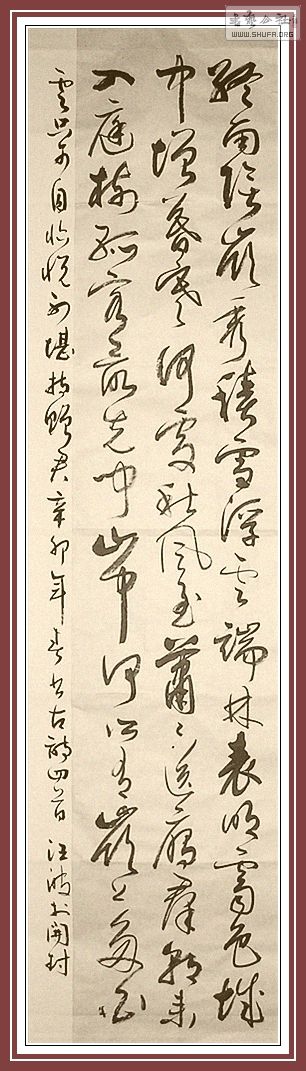 書藝公社
WWW.SHUFA.ORG
終南陰嶺秀積雪浮雲端林表明霽色城
中增暮寒何處秋風至蕭々送雁群朝来
入庭樹孤客最先聞山中何所有嶺上多白
雲只可自怡悦不堪持贈君辛卯年春書古詩四首 汪於開封